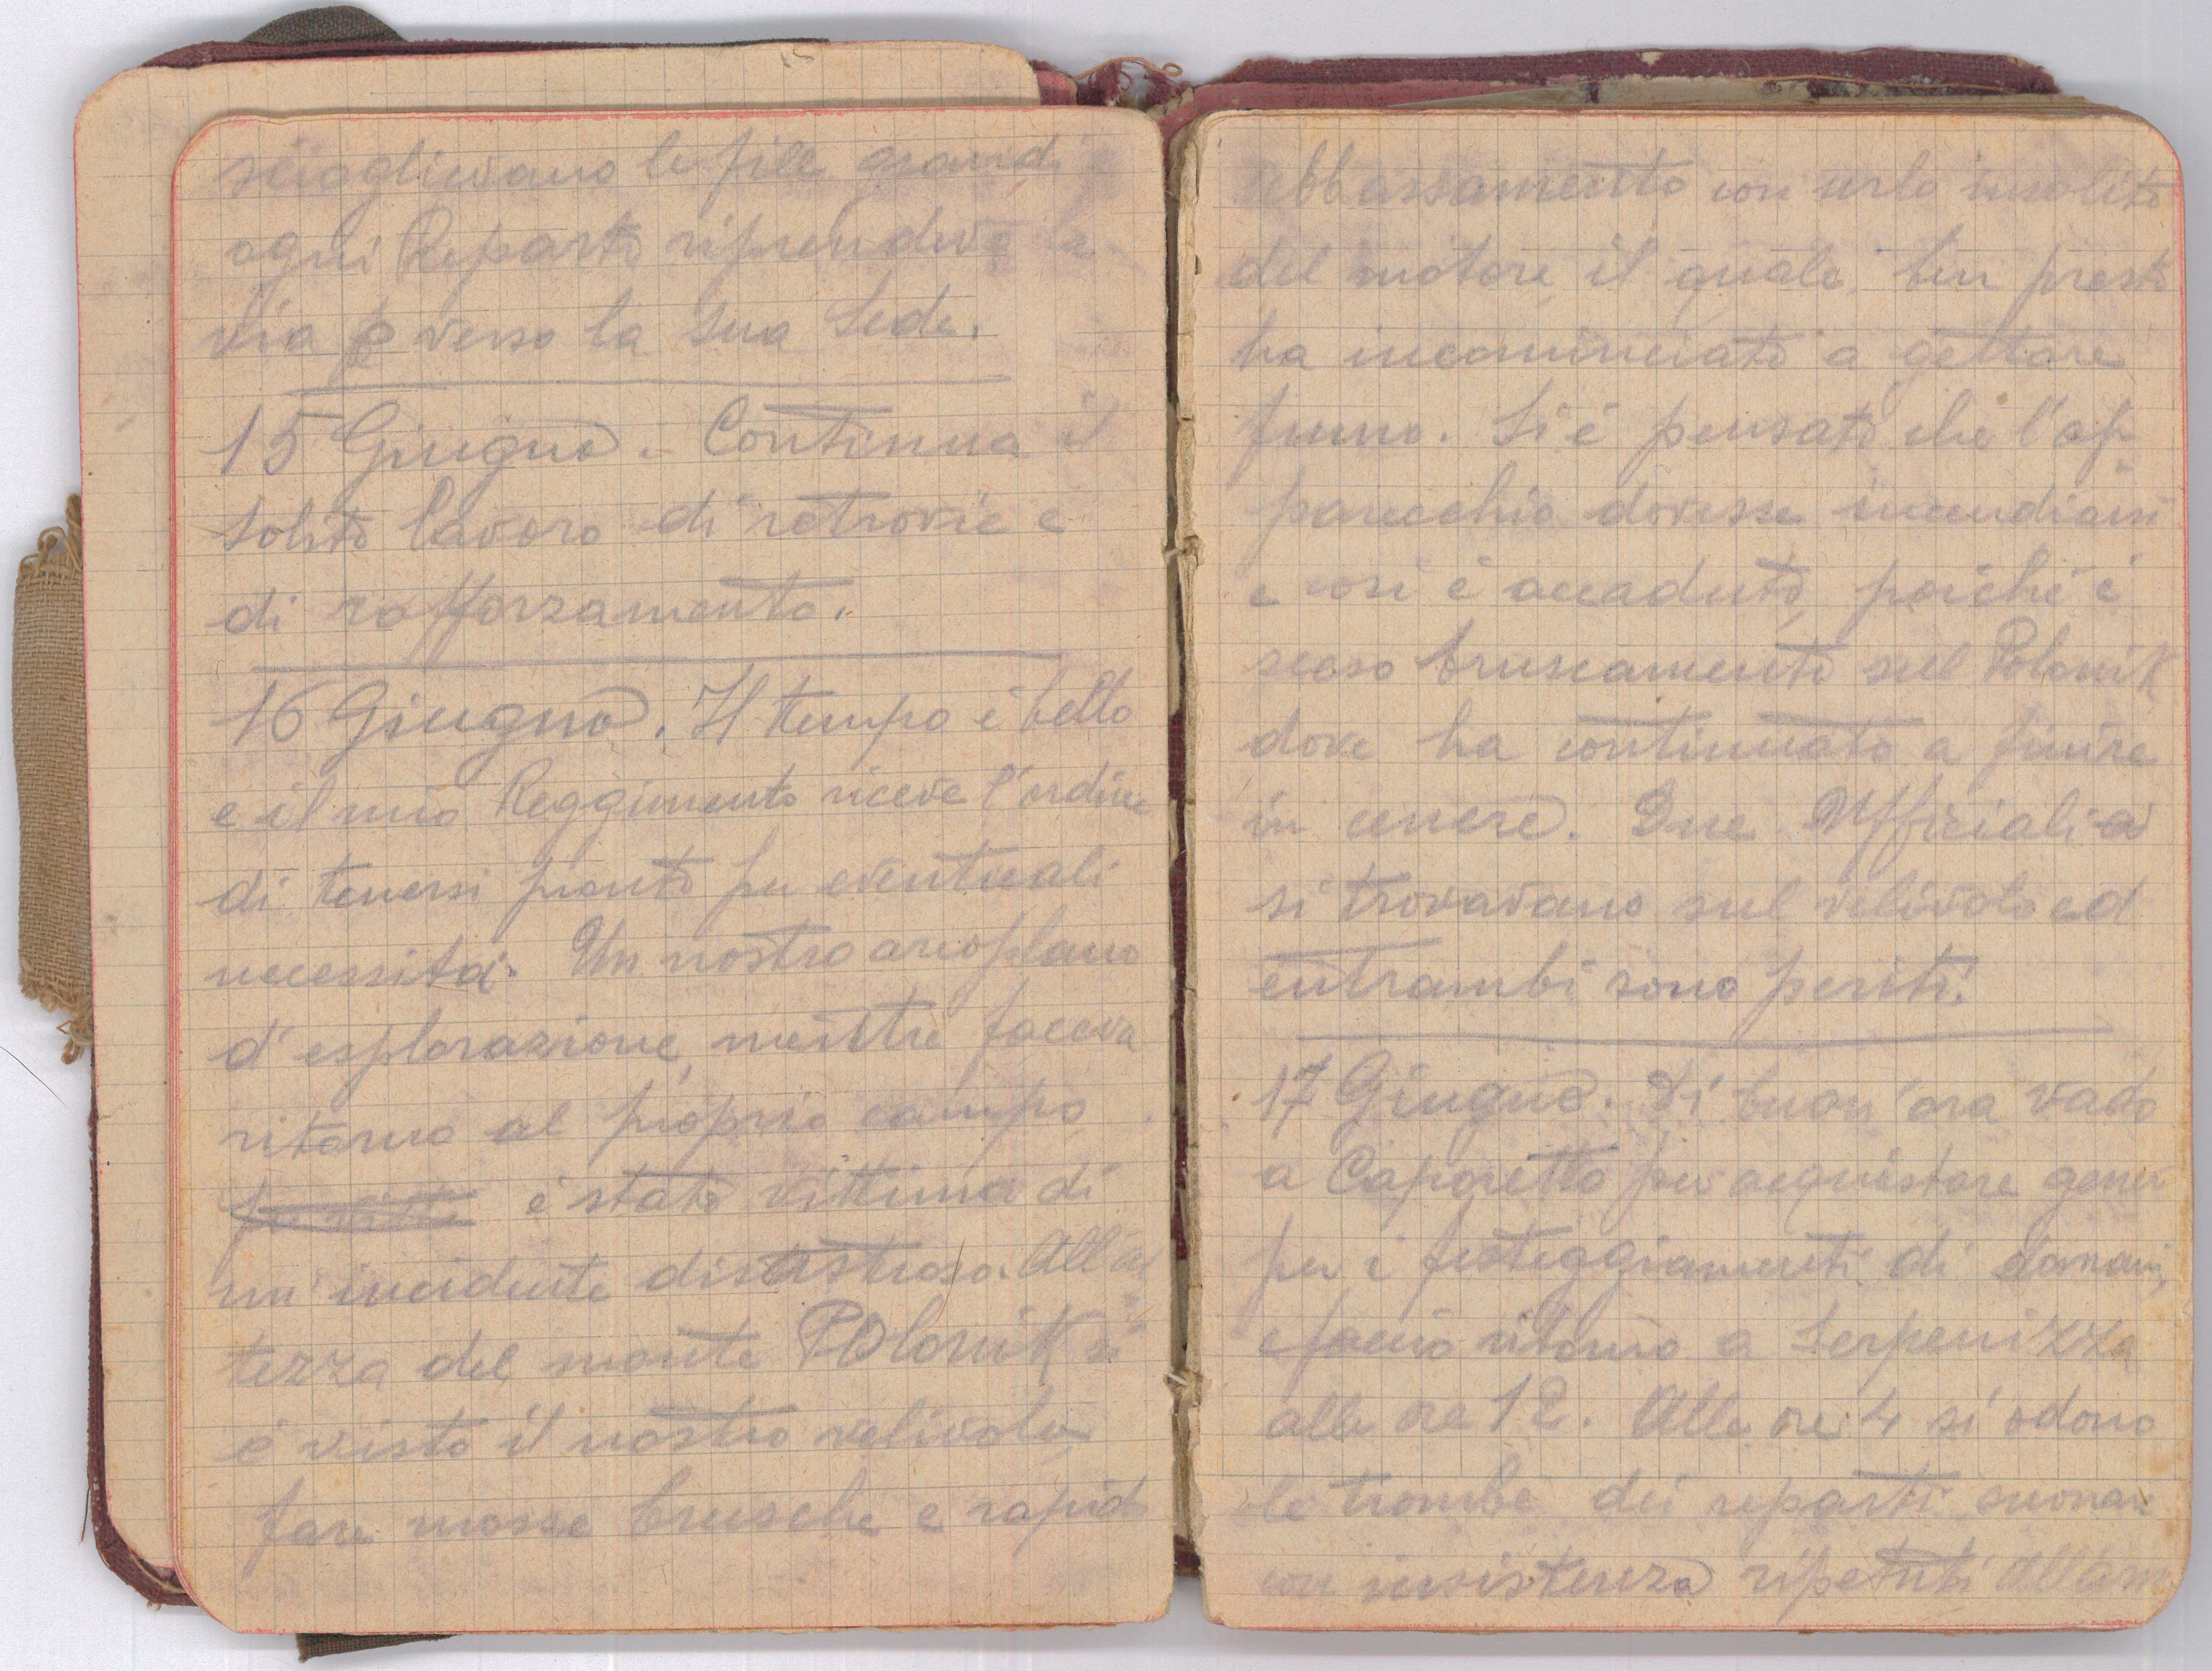 scioglievano le file grandi e
ogni Reparto riprendeva la
via verso la sua Sede.
15 Giugno. Continua il
solito lavoro di retrovie e
di rafforzamento.
16 Giugno. Il tempo è bello
e il mio Reggimento riceve l'ordine
di tenersi pronto per eventuali
necessità. Un nostro areoplano
d'esplorazione, mentre faceva
ritorno al proprio campo
è stato vittima di
un'incidente disastroso. All'al
tezza del monte POlonik si
è visto il nostro velivolo
fare mosse brusche e rapid
abbassamento con urlo insolito
del motore, il quale ben presto
ha incominciato a gettare
fumo. Si è pensato che l'ap
parecchio dovesse incendiarsi
e così è accaduto, poiché è
sceso bruscamente sul Polonik
dove ha continuato a finire
in cenere. Due Ufficiali
si trovavano sul velivolo ed
entrambi sono periti.
17 Giugno. Di buon'ora vado
a Caporetto per acquistare generi
per i festeggiamenti di domani,
e faccio ritorno a Serpenizza
alle ore 12. Alle ore 4 si odono
le trombe dei reparti suonare
con insistenza ripetuti allarm